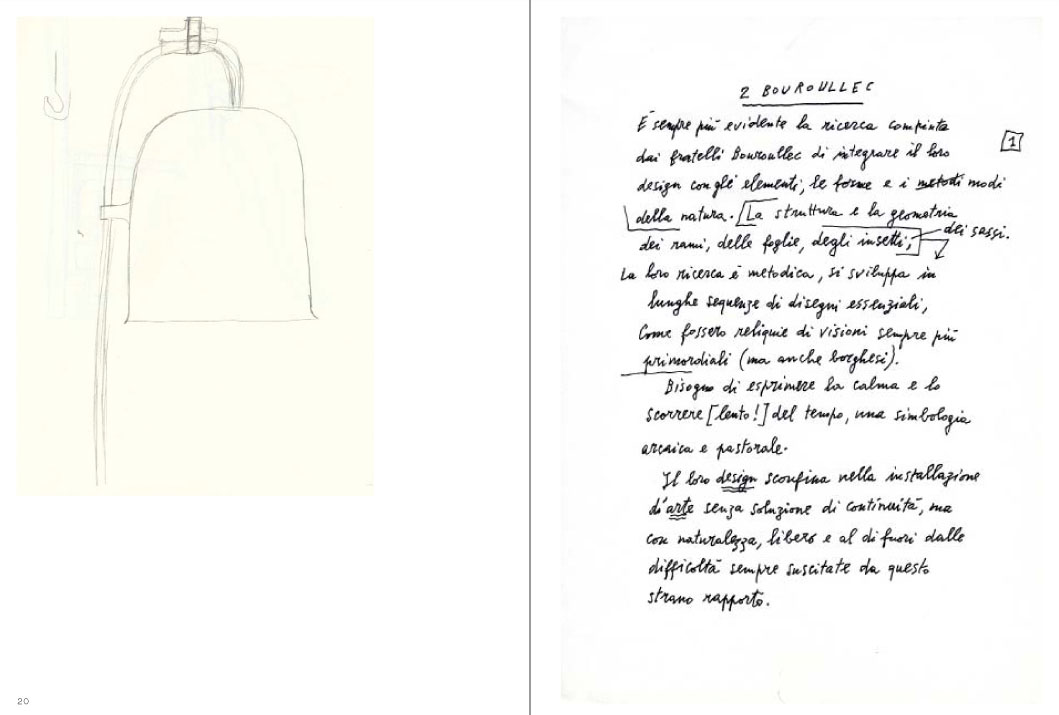 2 BOUROULLEC
1
È sempre più evidente la ricerca compiuta
dai fratelli Bouroullec di integrare il loro
design con gli elementi, le forme e i metodi modi
della natura. [La struttura e la geometria
dei rami, delle foglie, degli insetti, dei sassi.
La loro ricerca è metodica, si sviluppa in
lunghe sequenze di disegni essenziali,
come fossero reliquie di visioni sempre più
primordiali (ma anche borghesi).
Bisogno di esprimere la calma e lo
scorrere [lento!] del tempo, una simbologia
arcaica e pastorale.
Il loro design sconfina nella installazione
d'arte senza soluzione di continuità, ma
con naturalezza, libero e al di fuori dalle
difficoltà sempre suscitate da questo
strano rapporto.
20